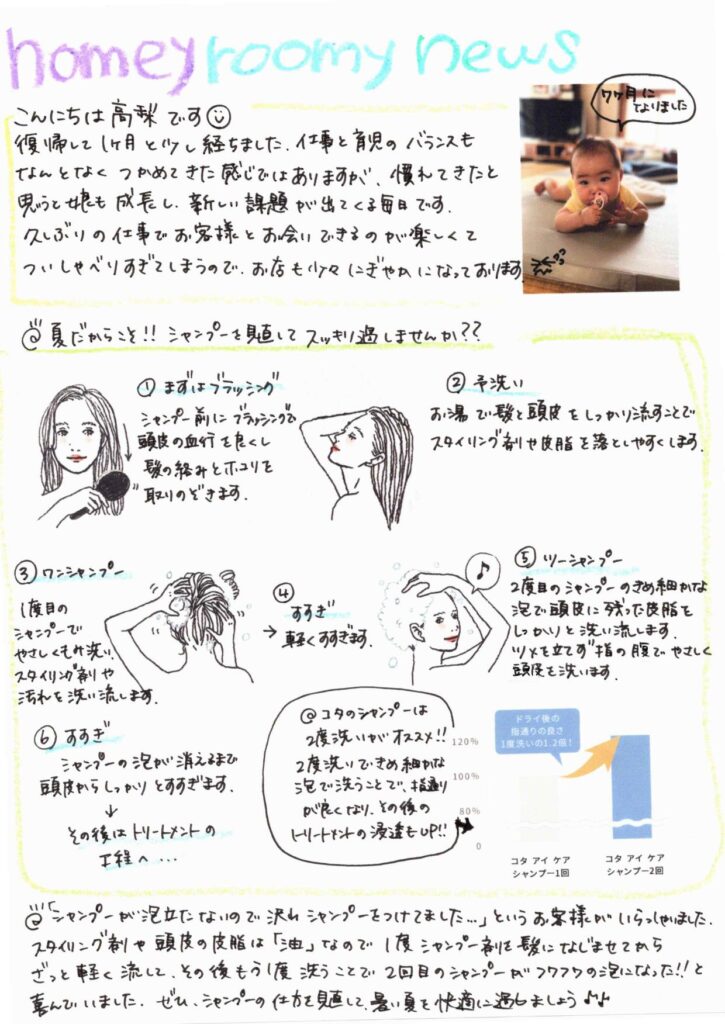 homey roomy news
こんにちは 高梨です
復帰して1ヶ月と少し経ちました。仕事と育児のバランスも
なんとなくつかめてきた感じではありますが、慣れてきたと
思うと娘も成長し、新しい課題が出てくる毎日です。
久しぶりの仕事でお客様とお会いできるのが楽しくて
ついしゃべりすぎてしまうので、お店も少々にぎやかになっております。
7ヶ月に
なりました
@夏だからこそ!! シャンプーを見直して スッキリ過しませんか??
① まずはブラッシング
シャンプー前にブラッシングで
頭皮の血行を良くし
髪の絡みとホコリを
取りのぞきます。
② 予洗い
お湯で髪と頭皮をしっかり流すことで
スタイリング剤や皮脂を落としやすくします。
③ ワンシャンプー
1度目の
シャンプーで
やさしくもみ洗い。
スタイリング剤や
汚れを洗い流します。
④ すすぎ
→ 軽くすすぎます。
♪
⑤ ツーシャンプー
2度目のシャンプーのきめ細かな
泡で頭皮に残った皮脂を
しっかりと洗い流します。
ツメを立てず指の腹でやさしく
頭皮を洗います。
⑥ すすぎ
シャンプーの泡が消えるまで
頭皮からしっかりとすすぎます。
↓
その後はトリートメントの
工程へ...
@コタのシャンプーは
2度洗いがオススメ!!
2度洗いできめ細かな
泡で洗うことで、指通り
が良くなり、その後の
トリートメントの浸透もUP!!
ドライ後の
指通りの良さ
1度洗いの1.2倍!
120%
100%
80%
0
コタ アイ ケア
シャンプー1回
コタ アイ ケア
シャンプー2回
@「シャンプーが泡立たないので沢山シャンプーをつけてました...」というお客様がいらっしゃいました。
スタイリング剤や頭皮の皮脂は「油」なので1度シャンプー剤を髪になじませてから
ざっと軽く流して、その後もう1度洗うことで2回目のシャンプーがフワフワの泡になった!!と
喜んでいました。ぜひ、シャンプーの仕方を見直して、暑い夏を快適に過しましょう♪♪